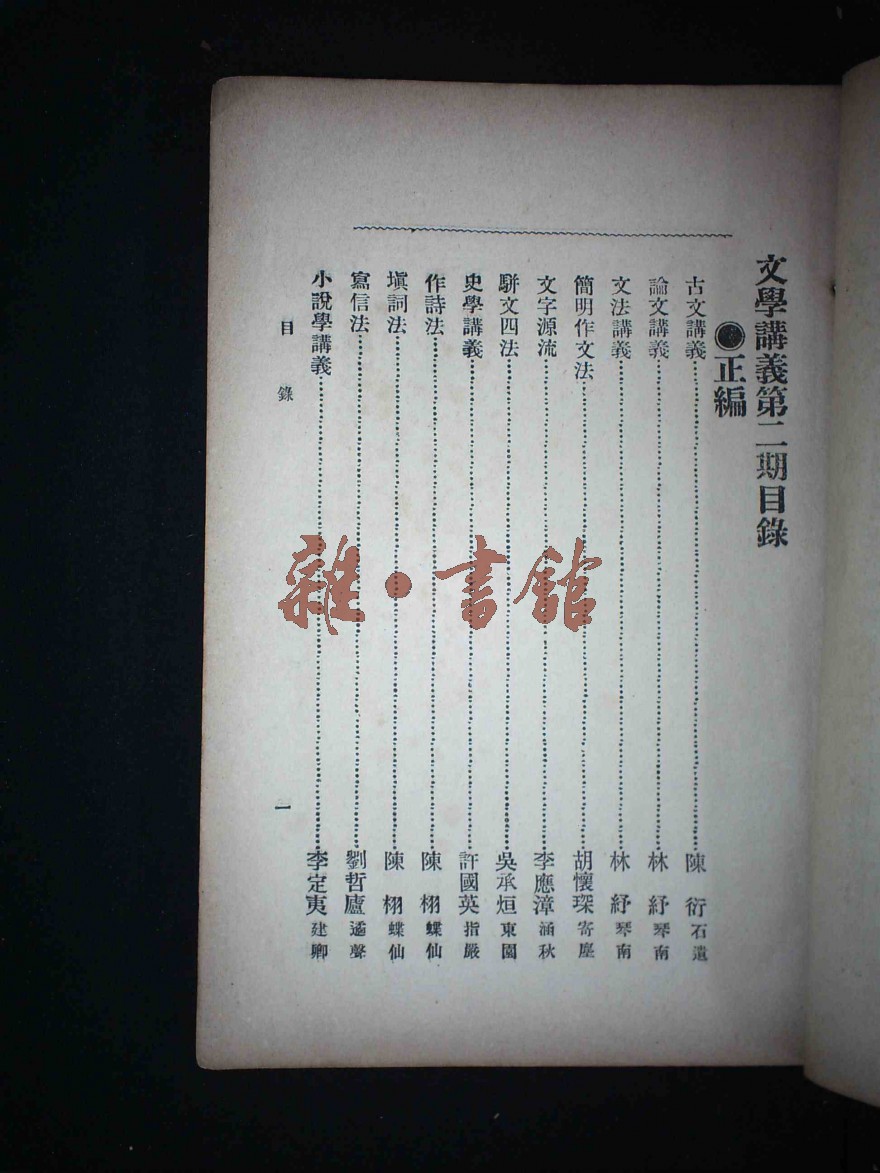 文學講義第二期目錄
●正編
古文講義……陳衍石遺
論文講義……林紓琴南
文法講義……林紓琴南
簡明作文法……胡懷琛寄塵
文字源流……李應漳涵秋
駢文四法……吳承烜東園
史學講義……許國英指嚴
作詩法……陳栩蝶仙
塡詞法……陳栩蝶仙
寫信法……劉哲廬遹聲
小說學講義……李定夷建卿
目錄
一
雜·書館